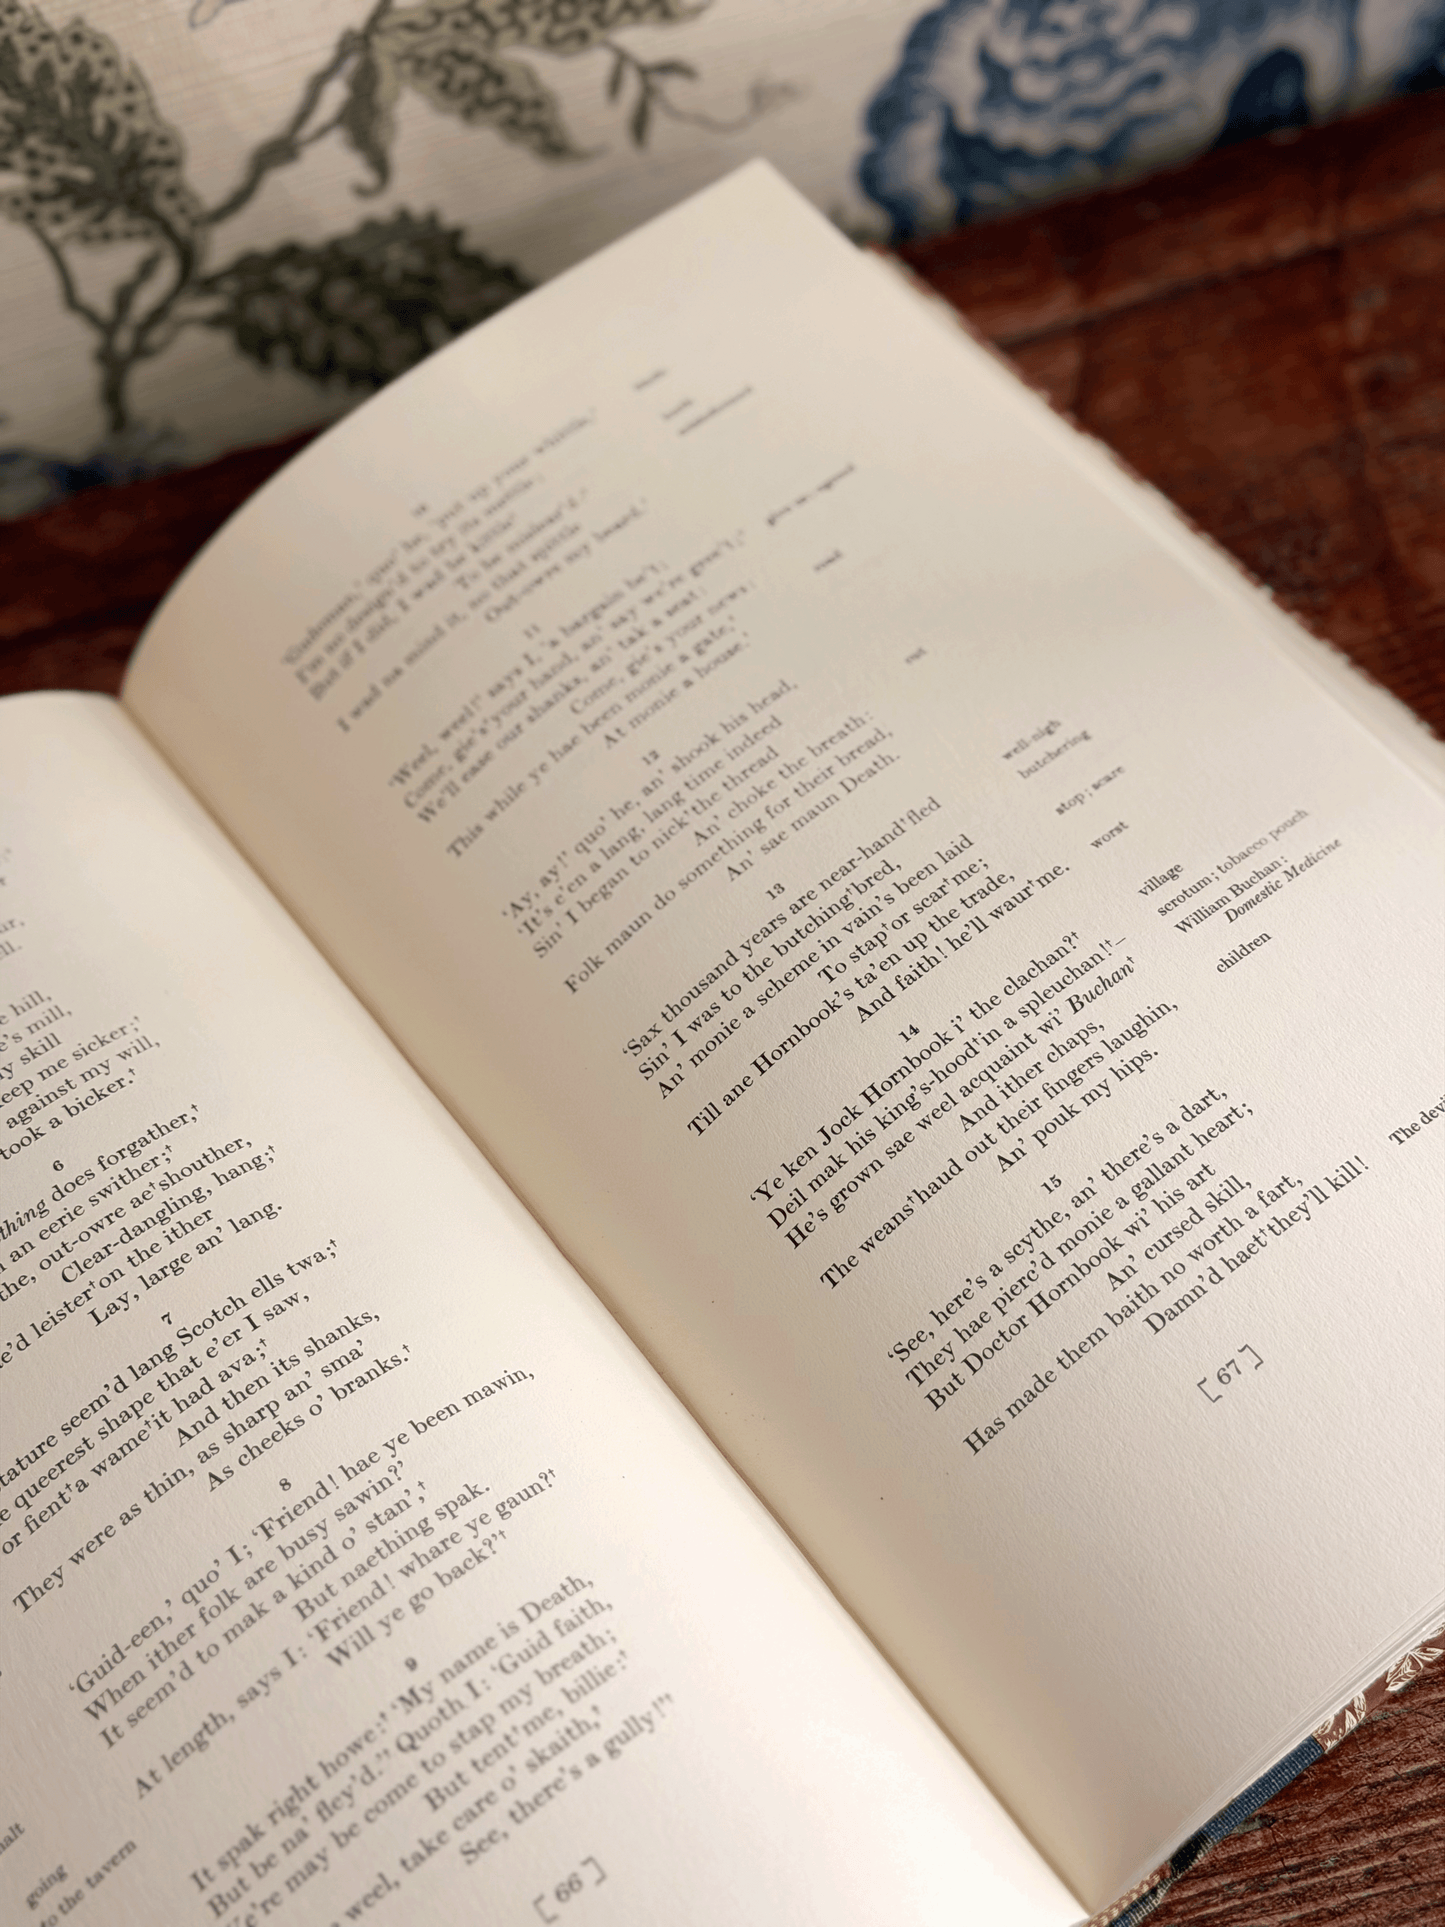 e hill,
e's mill,
y skill
eep me sicker;'
against my will,
took a bicker.†
6
thing does forgather,†
an eerie swither;†
the, out-owre ae†shouther,
Clear-dangling, hang;†
e'd leister†on the ither
Lay, large an' lang.
7
tature seem'd lang Scotch ells twa;†
e queerest shape that e'er I saw,
or fient†a wame†it had ava;†
And then its shanks,
They were as thin, as sharp an' sma'
As cheeks o' branks.†
8
'Guid-een,' quo' I; 'Friend! hae ye been mawin,
When ither folk are busy sawin?'
It seem'd to mak a kind o' stan',†
But naething spak.
At length, says I: 'Friend! whare ye gaun?†
Will ye go back?'†
9
It spak right howe:† 'My name is Death,
But be na' fley'd.' Quoth I: 'Guid faith,
Ye're may be come to stap my breath;
But tent†me, billie:†
weel, take care o' skaith,†
See, there's a gully!'†
malt
going
to the tavern
[ 66 ]
10
'Gudeman,' quo' he, 'put up your whittle,†
I'm no design'd to try its mettle;
But if I did, I wad be kittle†
To be mislear'd:†
I wad na mind it, no that spittle
Out-owre my beard.'
11
'Weel, weel!' says I, 'a bargain be't;
Come, gie's†your hand, an' say we're gree't;†
We'll ease our shanks, an' tak a seat:
Come, gie's your news:
This while ye hae been monie a gate,†
At monie a house.'
give us; agreed
road
12
'Ay, ay!' quo' he, an' shook his head,
'It's e'en a lang, lang time indeed
Sin' I began to nick†the thread
An' choke the breath:
Folk maun do something for their bread,
An' sae maun Death.
cut
13
'Sax thousand years are near-hand†fled
Sin' I was to the butching†bred,
An' monie a scheme in vain's been laid
To stap†or scar†me;
Till ane Hornbook's ta'en up the trade,
And faith! he'll waur†me.
well-nigh
butchering
stop; scare
worst
14
'Ye ken Jock Hornbook i' the clachan?†
Deil mak his king's-hood†in a spleuchan!†—
He's grown sae weel acquaint wi' Buchan†
And ither chaps,
The weans†haud out their fingers laughin,
An' pouk my hips.
village
scrotum; tobacco pouch
William Buchan:
Domestic Medicine
children
15
'See, here's a scythe, an' there's a dart,
They hae pierc'd monie a gallant heart;
But Doctor Hornbook wi' his art
An' cursed skill,
Has made them baith no worth a fart,
Damn'd haet†they'll kill!
The devil
[ 67 ]